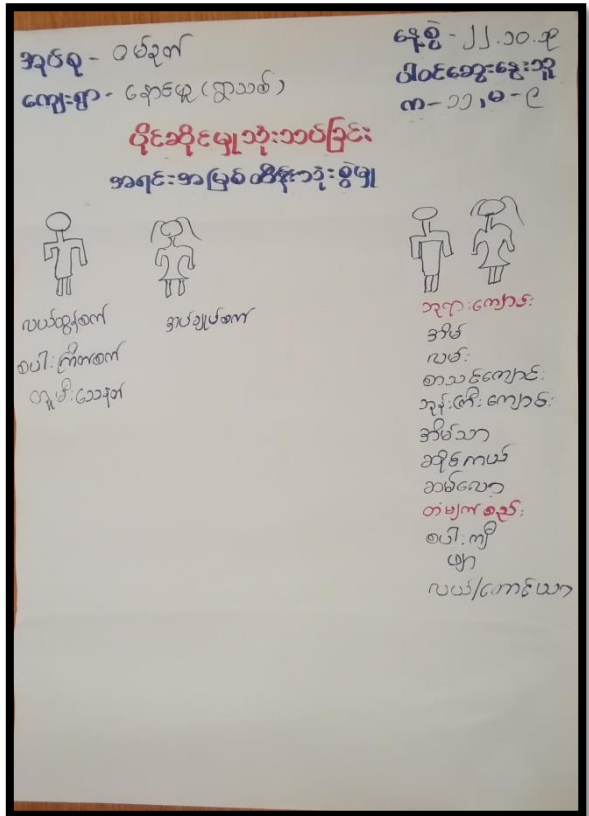 အုပ်စု - ဝမ်ခုတ်
ကျေးရွာ - နောင်ယူ (ရွာသစ်)
နေ့စွဲ - ၂၂.၁၀.၃၃
ပါဝင်ဆွေးနွေးသူ
က - ၁၁, မ - ၉
ပိုင်ဆိုင်မှုသုံးသပ်ခြင်း
အရင်းအမြစ်ထိန်းသုံးစွဲမှု
လယ်ထွန်စက်
စပါးကြိတ်စက်
တူမီးသေနတ်
အပ်ချုပ်စက်
ဘုရားကျောင်း
အိမ်
လမ်း
စာသင်ကျောင်း
ဘုန်းကြီးကျောင်း
အိမ်သာ
ဆိုင်ကယ်
တံမျက်စည်း
စပါးကျီ
ဖျာ
လယ်/တောင်ယာ